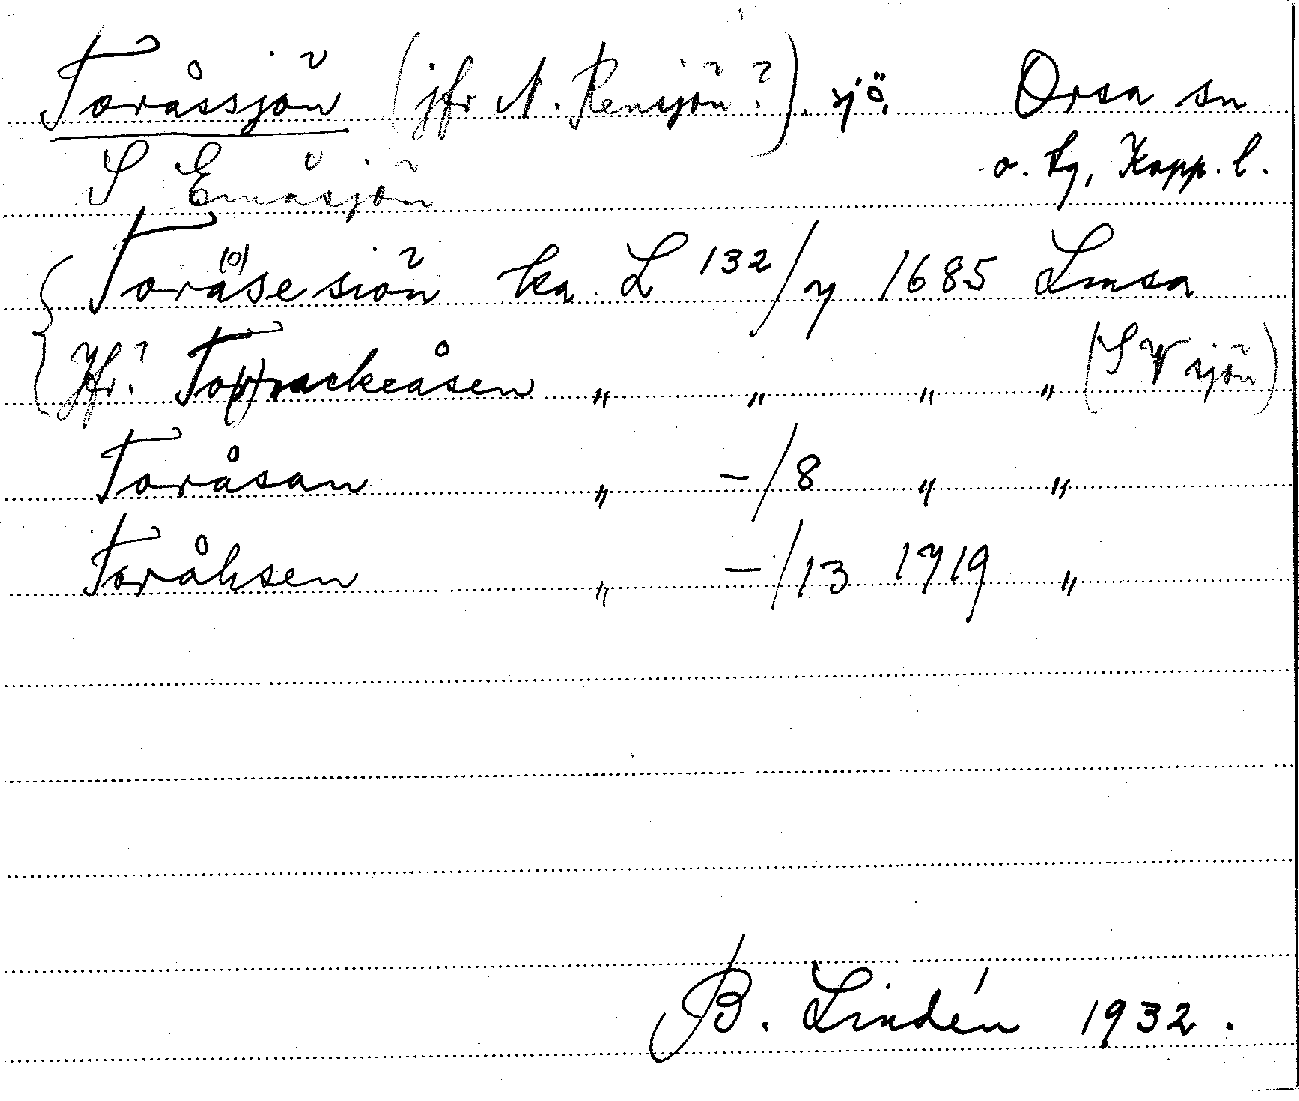 Toråssjön (jfr N. Rensjön?) sjö. Orsa sn
S Emåsjön o. tg, Kopp. l.
Toråsesiön ka L 132/7 1685 Lmsa
Jfr? To(r)rackeåsen " " " " (S V sjön)
Toråsan " -/8 " "
Toråhsen " -/13 1719 "
B. Lindén 1932.